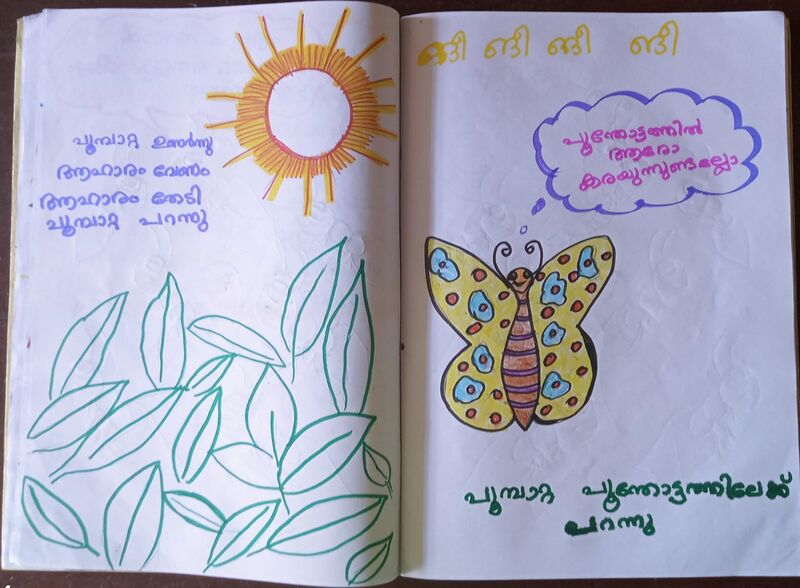 പൂമ്പാറ്റ ഉണർന്നു
ആഹാരം വേണം
ആഹാരം തേടി
പൂമ്പാറ്റ പറന്നു
ങീ ങീ ങീ ങീ
പൂന്തോട്ടത്തിൽ
ആരോ
കരയുന്നുണ്ടല്ലോ
പൂമ്പാറ്റ പൂന്തോട്ടത്തിലേക്ക്
പറന്നു